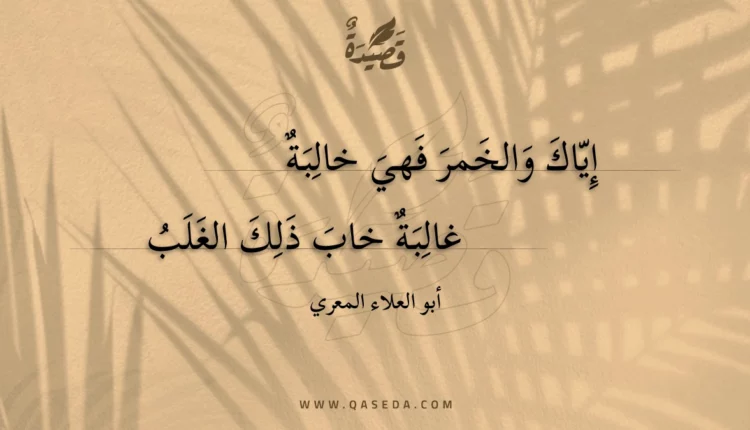 قَصِيدَةٌ
إِيّاكَ وَالخَمرَ فَهيَ خالِبَةٌ
غالِبَةٌ خابَ ذَلِكَ الغَلَبُ
أبو العلاء المعري
WWW.QASEDA.COM